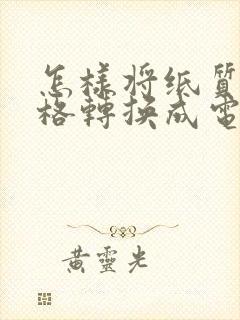 怎樣將纸質
格轉換成電
黄靈光